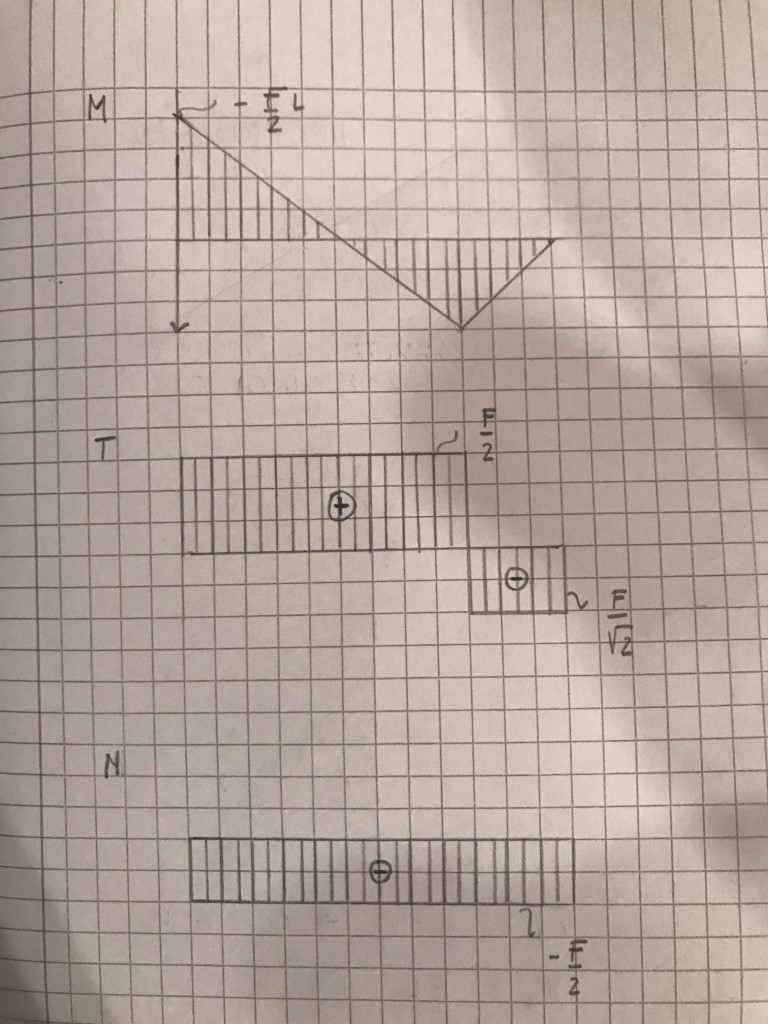 M
- F/2 L
T
F/2
+
-
F/√2
N
-
- F/2